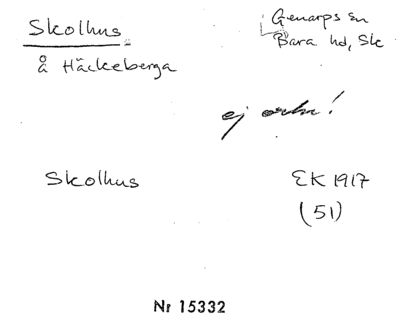 Skolhus
å Häckeberga
Genarps sn
Bara hd, Sk
ej ortn!
Skolhus
EK 1917
(51)
Nr 15332